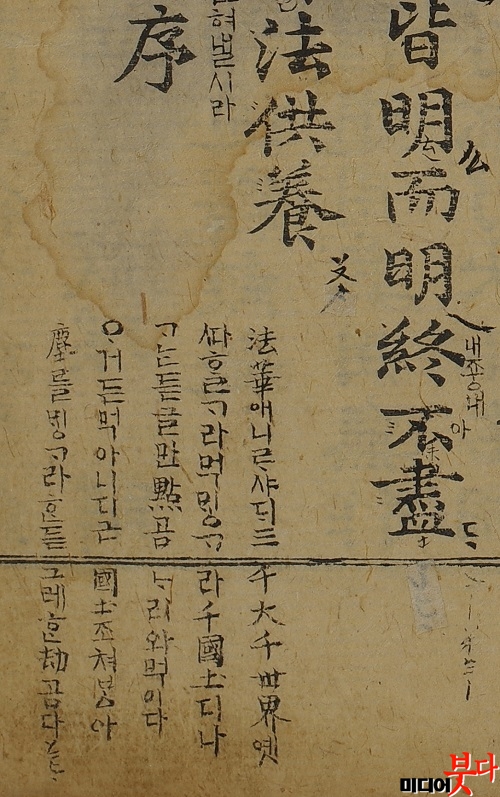 皆明而明終不盡
내죵내
法供養
혀낼시라
序
法華애니ᄅᆞ샤ᄃᆡ三千大千世界옛
ᄯᅡᄒᆞᆯᄀᆞ라먹ᄆᆡᆼᄀᆞ라千國土디나
ᄀᆞᄂᆞᆫ듣글만點곰ᄂᆞ리와먹이다
ᄋᆞ거든먹아니디근國土조쳐ᄇᆞᆺ아
塵ᄅᆞᆯᄆᆡᆼᄀᆞ라ᄒᆞᆫ듣그레ᄒᆞᆫ劫곰다
미디어붓다